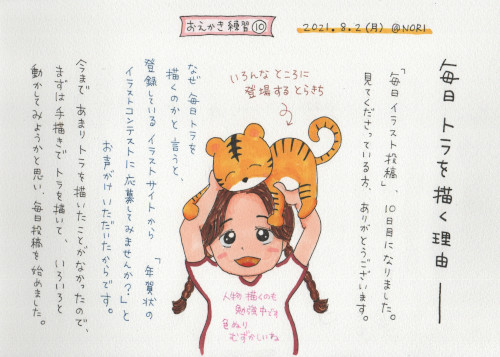 おえかき練習⑩
2021.8.2(月) @NORI
毎日トラを描く理由―
「毎日イラスト投稿」、10日目になりました。
見てくださっている方、ありがとうございます。
いろんなところに
登場するとらきち
なぜ毎日トラを
描くのかと言うと、
登録しているイラストサイトから「年賀状の
イラストコンテストに応募してみませんか?」と
お声がけいただいたからです。
今まであまりトラを描いたことがなかったので、
まずは手描きでトラを描いて、いろいろと
動かしてみようかと思い、毎日投稿を始めました。
人物描くのも
勉強中です
色ぬり
むずかしいね